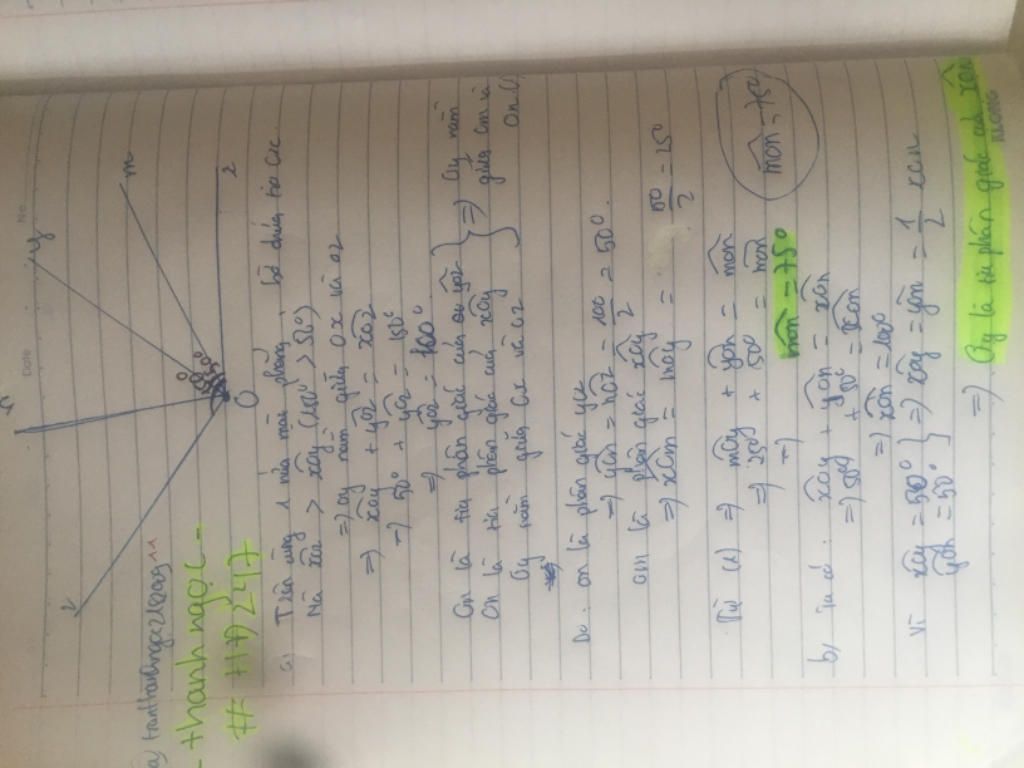 No
Date
n
y
m
z
O
- thanh ngọc -
# HĐ 247
a) Trên cùng 1 nửa mặt phẳng, bờ chứa tia Ox
>
=> oy nằm giữa Ox và oz
=> xoy + yoz = xoz
=> 50° + yoz = 150°
=> yoz = 100°
Om là tia phân giác của
On là tia phân giác của xoy
Oy nằm giữa Ox và oz
=> Oy nằm
giữa Om và
On (1)
Do: on là phân giác yoz
=> yon = noz = 100/2 = 50°.
om là phân giác xoy
=> xom = moy = 50/2 = 25°
Từ (1) => moy + yon = mon
=> 25° + 50° = mon
=> mon = 75°
mon = 75°
b) Ta có: xoy + yon = xon
=> 50° + 50° = xon
=> xon = 100°
Vì xoy = 50°
yon = 50°
=> xoy = yon = 1/2 xon
=> Oy là tia phân giác của xon